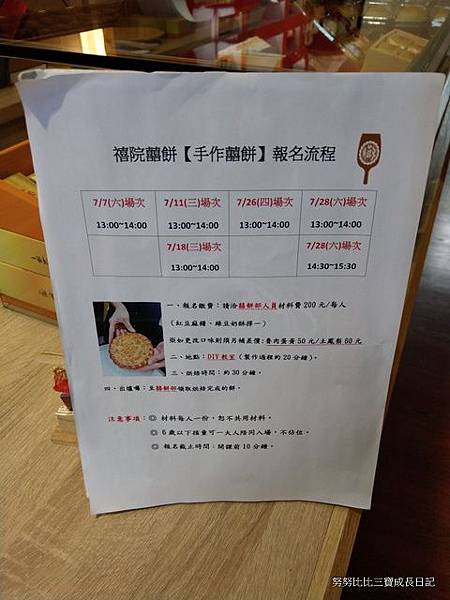 禧院囍餅【手作囍餅】報名流程
7/7(六)場次 7/11(三)場次 7/26(四)場次 7/28(六)場次
13:00~14:00 13:00~14:00 13:00~14:00 13:00~14:00
7/18(三)場次 7/28(六)場次
13:00~14:00 14:30~15:30
一、報名繳費:請洽囍餅部人員材料費 200 元/每人
(紅豆麻糬、綠豆奶酥擇一)
※如更改口味則須另補差價:魯肉蛋黃 50 元/土鳳梨 60 元
二、地點:DIY 教室(製作過程約 20 分鐘)。
三、烘焙時間:約 30 分鐘。
四、出爐囉:至囍餅部領取烘焙完成的餅。
注意事項:◎ 材料每人一份,恕不共用材料。
◎ 6 歲以下孩童可一大人陪同入場,不佔位。
◎ 報名截止時間:開課前 10 分鐘。
努努比比三寶成長日記